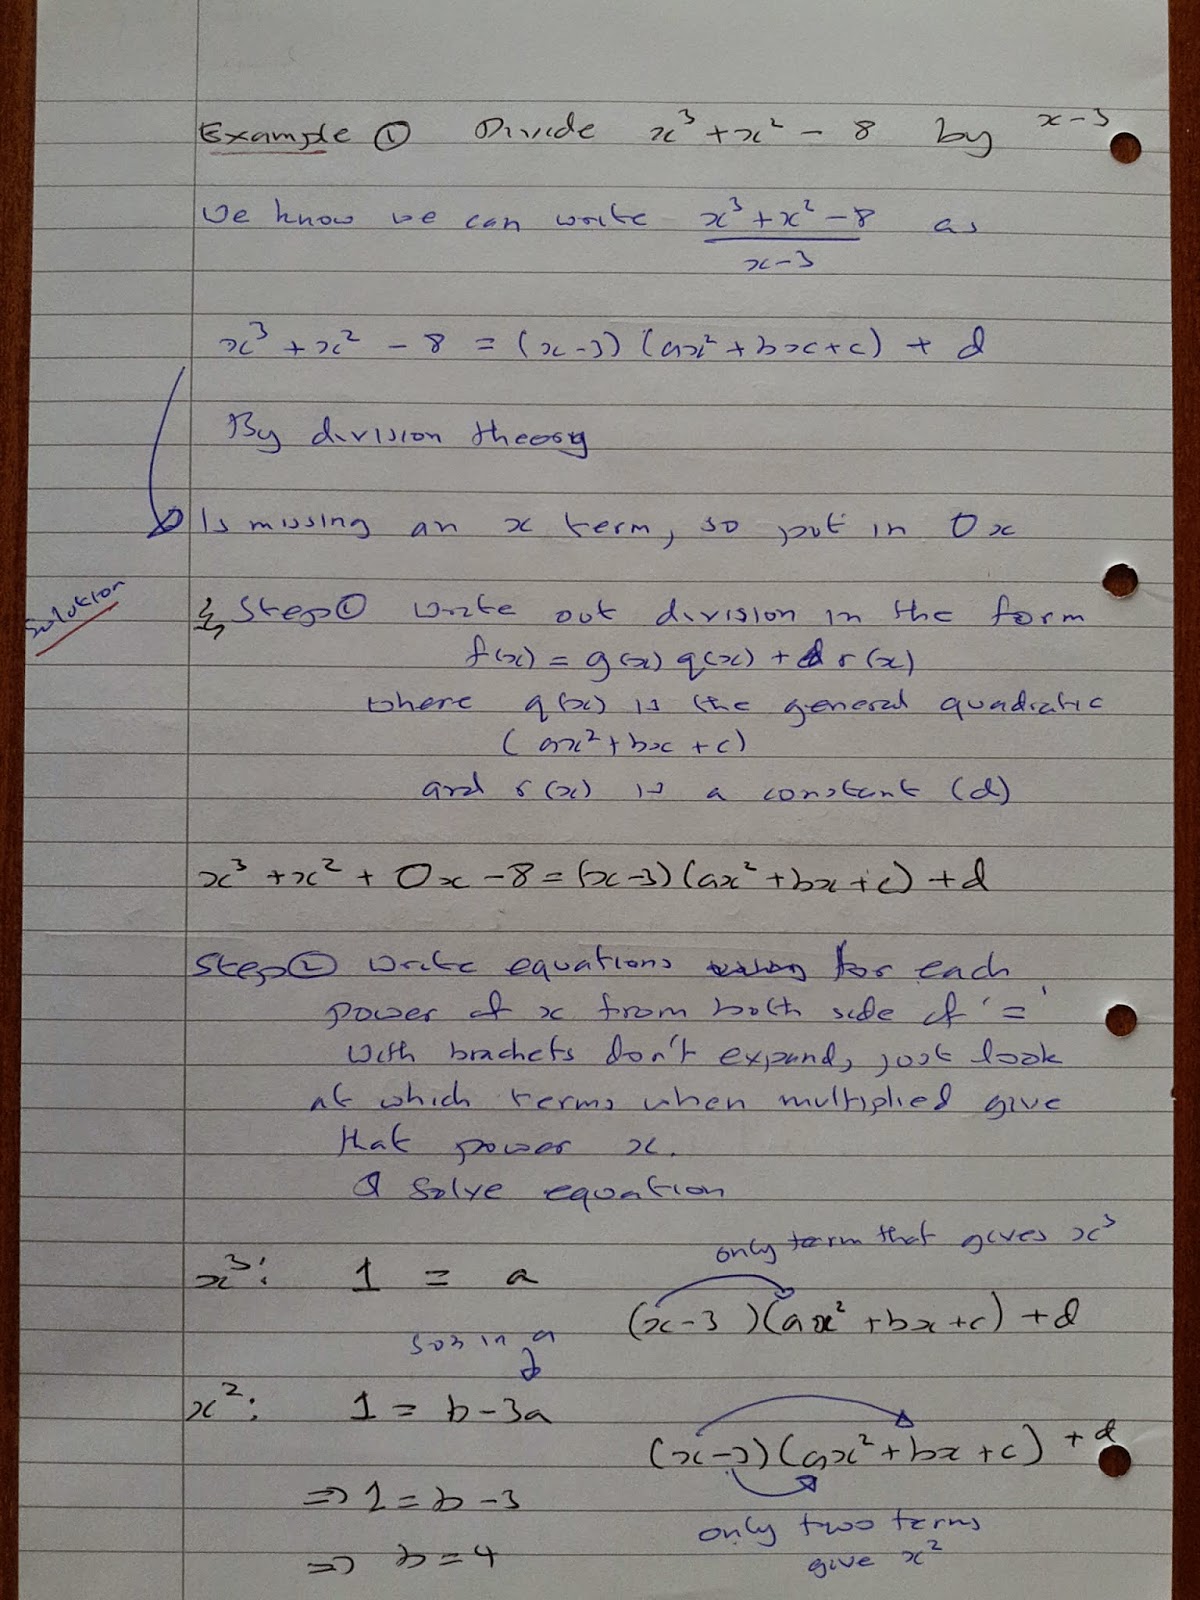 Example ① Divide x³ + x² - 8 by x-3
We know we can write x³ + x² - 8 as
x-3
x³ + x² - 8 = (x-3)(ax² + bx + c) + d
By division theory
Is missing an x term, so put in 0x
Solution
Step ① Write out division in the form
f(x) = g(x) q(x) + r(x)
where q(x) is the general quadratic
(ax² + bx + c)
and r(x) is a constant (d)
x³ + x² + 0x - 8 = (x-3)(ax² + bx + c) + d
Step ② Write equations for each
power of x from both side of '='
with brackets don't expand, just look
at which terms when multiplied give
that power x.
& solve equation
only term that gives x³
x³: 1 = a
(x-3)(ax² + bx + c) + d
sub in a
x²: 1 = b - 3a
(x-3)(ax² + bx + c) + d
⇒ 1 = b - 3
only two terms
give x²
⇒ b = 4